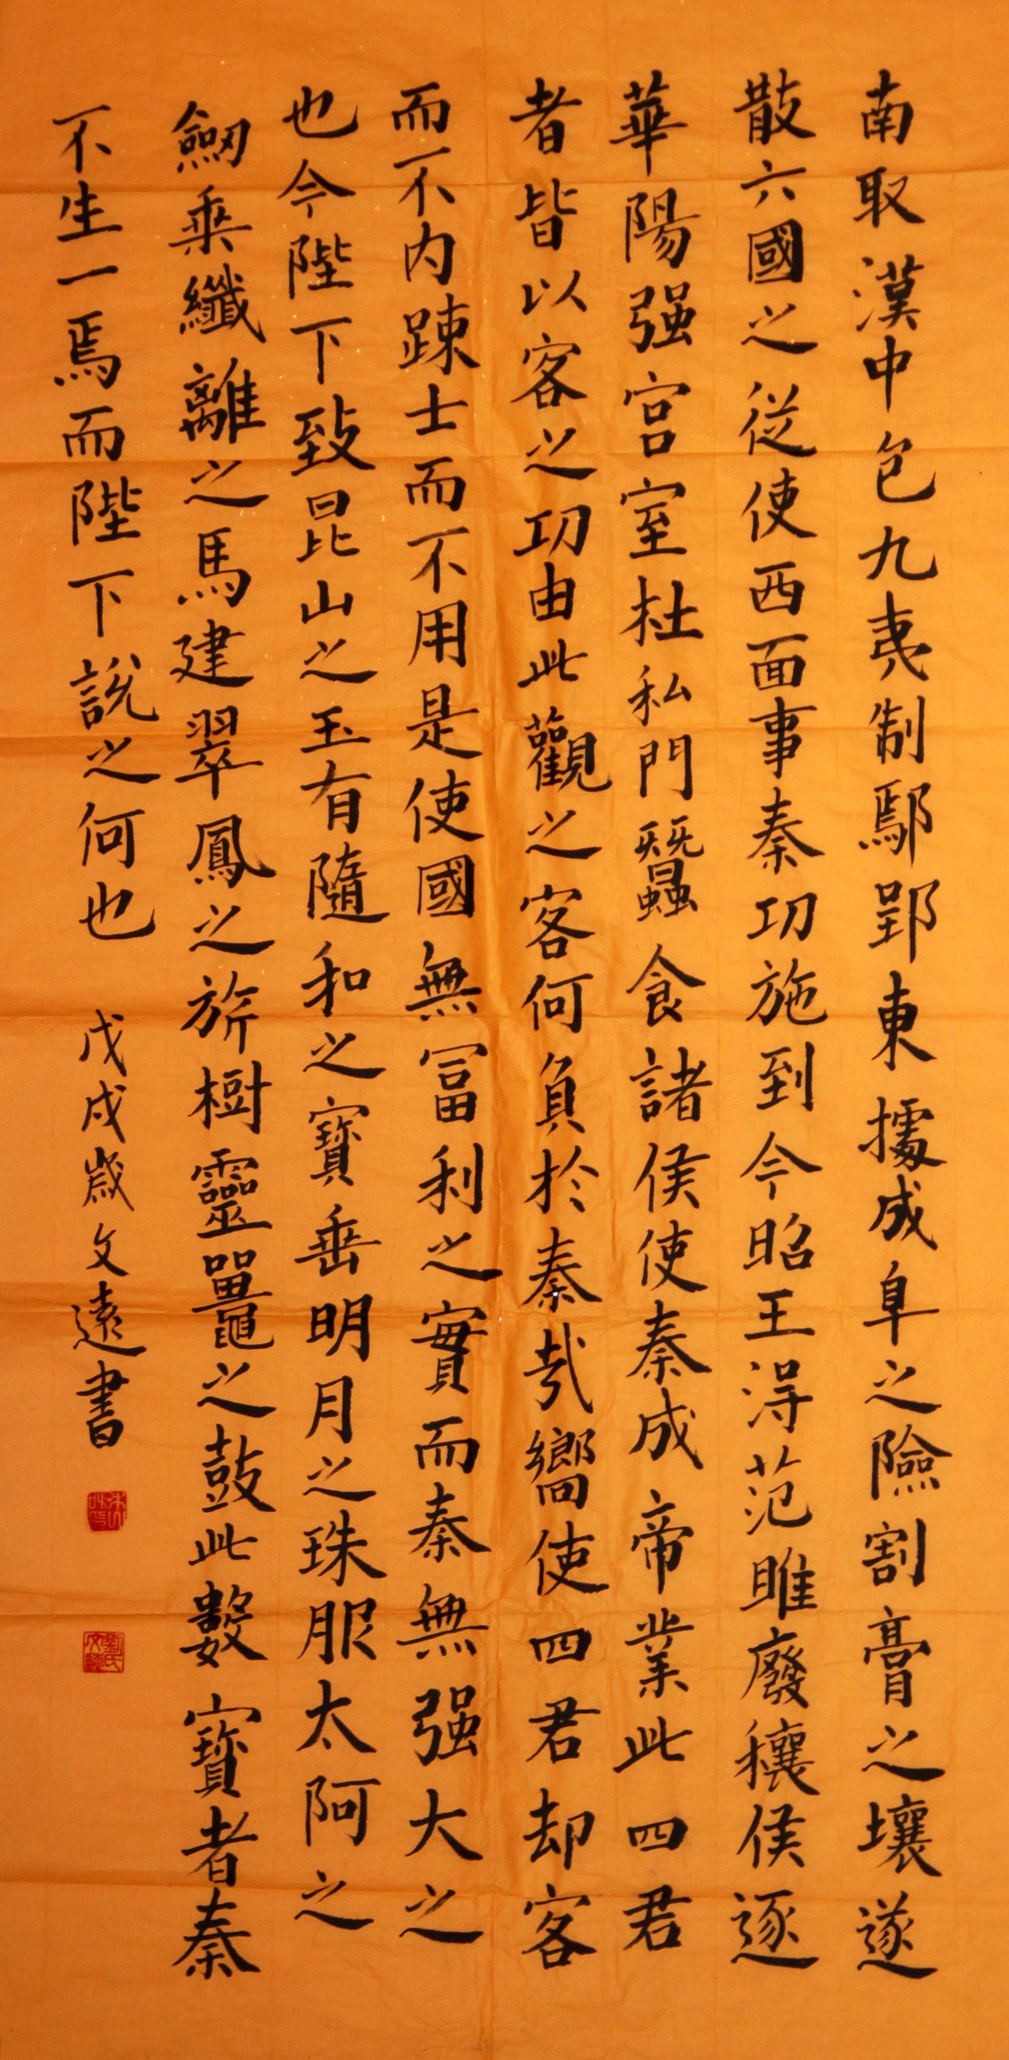 南取漢中包九夷制鄢郢東據成皐之險割膏之壤遂
散六國之從使西面事秦功施到今昭王得范雎廢穰侯逐
華陽强宫室杜私門蠶食諸侯使秦成帝業此四君
者皆以客之功由此觀之客何負於秦哉嚮使四君却客
而不内踈士而不用是使國無冨利之實而秦無强大之
也今陛下致昆山之玉有隨和之寶垂明月之珠服太阿之
劒乘纖離之馬建翠鳳之旂樹靈鼉之鼓此數寶者秦
不生一焉而陛下說之何也 戊戌歲文遠書